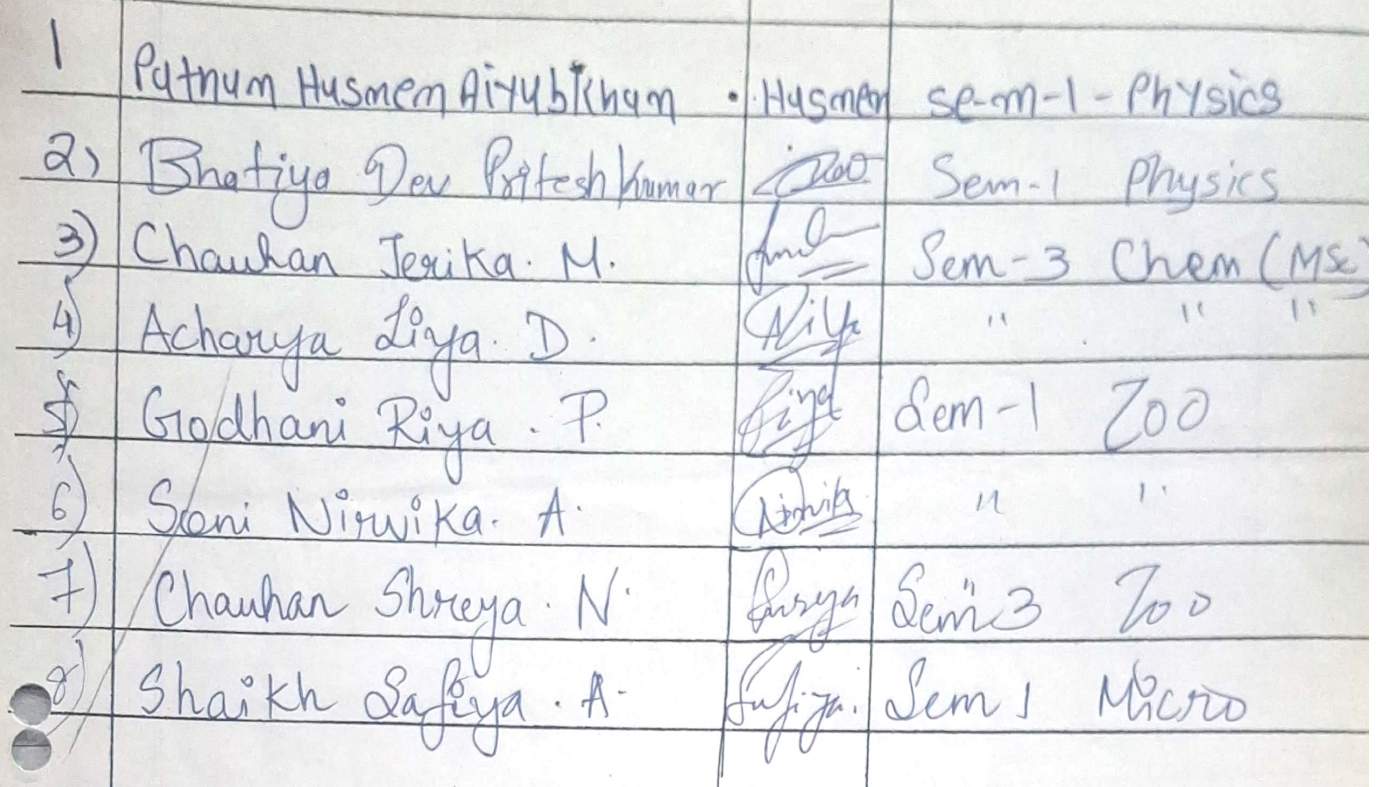 1 Pathan Husmen Aiyubkhan . Husmen sem-1 - Physics
2) Bhatiya Dev Priteshkumar Sem-1 Physics
3) Chauhan Jerika. M. Sem-3 Chem (MSc)
4) Acharya Liya. D. " " "
5) Godhani Riya. P. Riya Sem-1 Zoo
6) Soni Nirvika. A. Nirvika " "
7) Chauhan Shreya. N. Shreya Sem 3 Zoo
8) Shaikh Safiya. A. Safiya. Sem 1 Micro